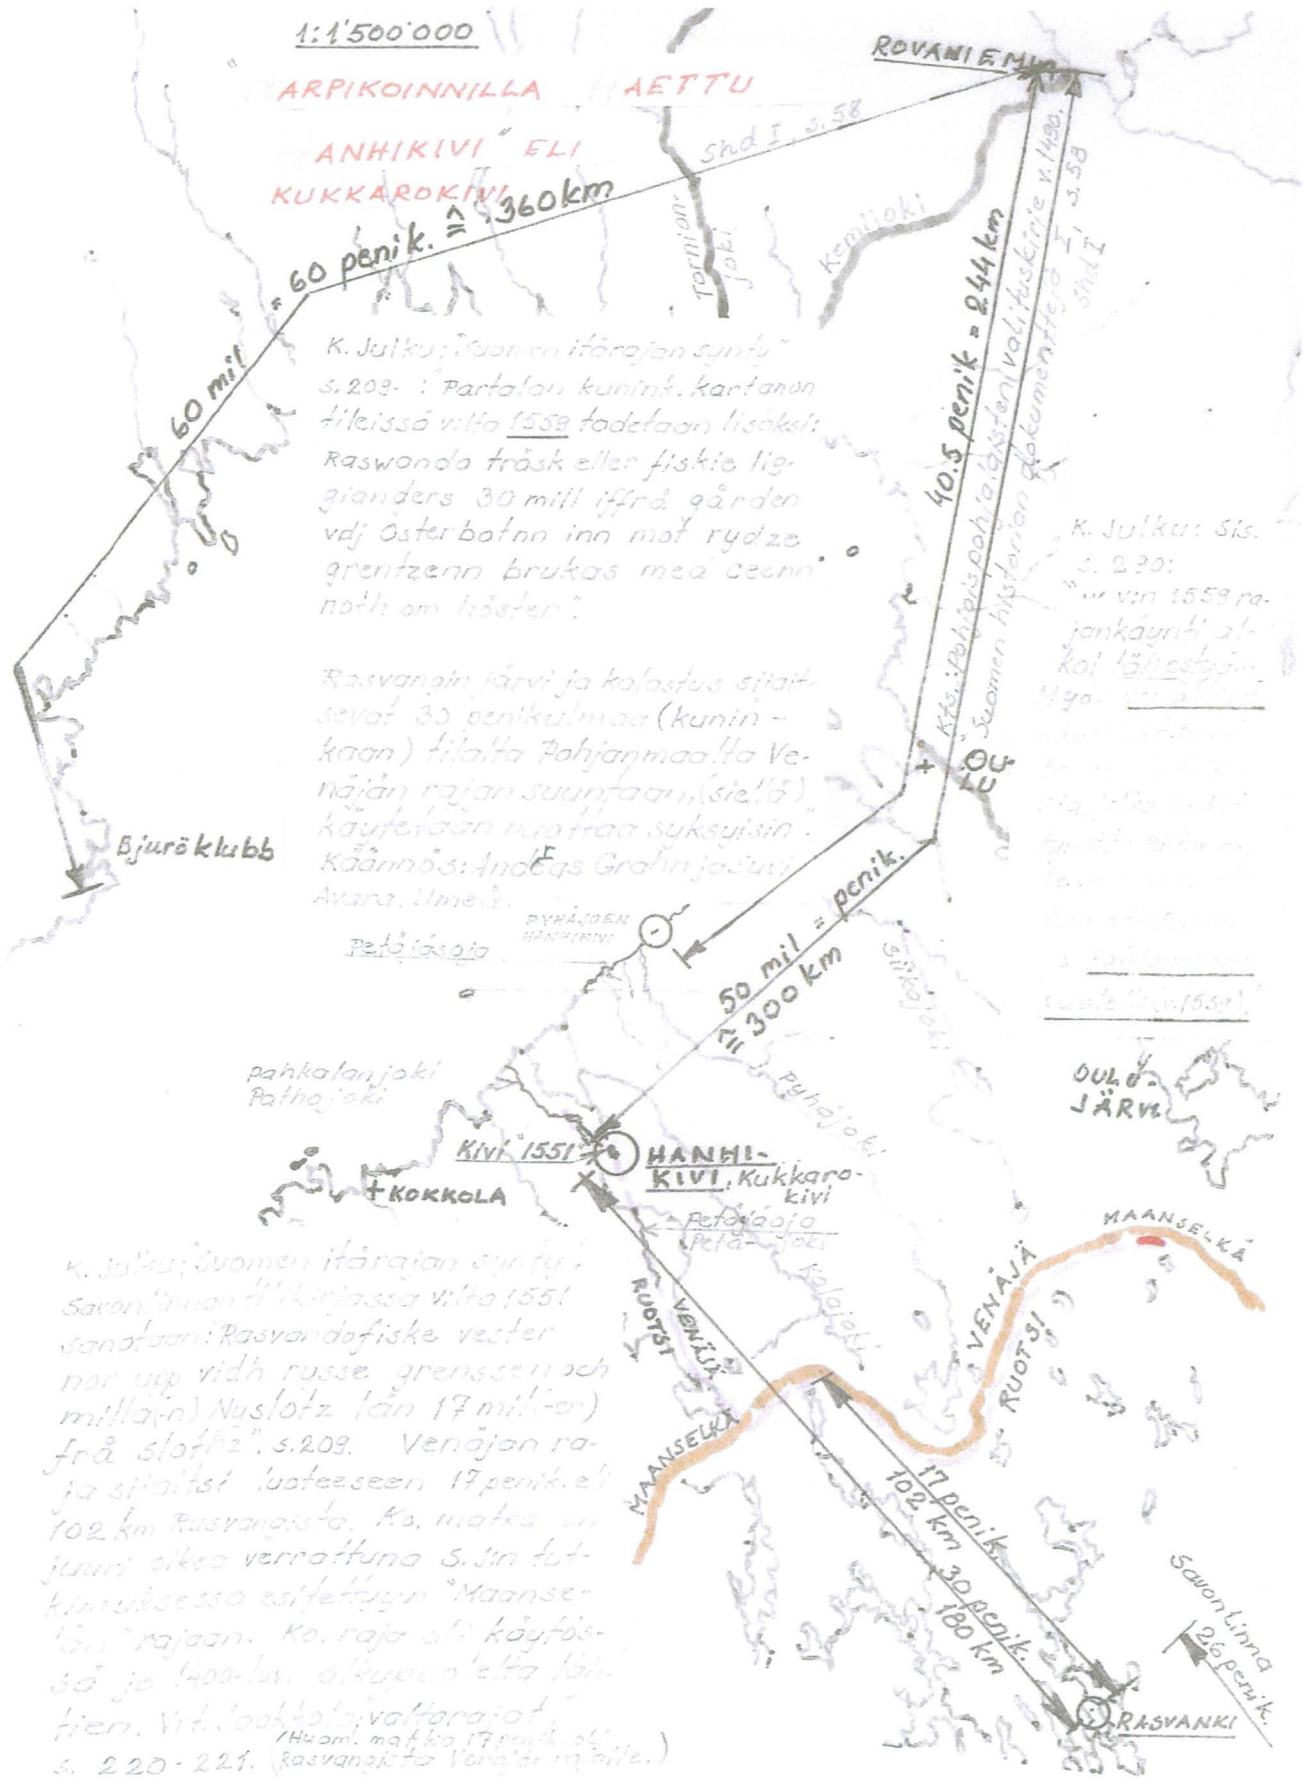 1:1'500'000
ROVANIEMI
"ARPIKOINNILLA AETTU
ANHIKIVI" ELI
KUKKAROKIVI
Shd I, s.58
60 penik. ≙ 360 km
60 mil
Tornion-
joki
Kemijoki
40.5 penik = 244 km
Kts.: Pohjoispohjalaisten valituskirje v. 1490.
"Suomen historian dokumentteja I"
Shd I, s.58
K. Julku; "Suomen itärajan synty"
s. 209- : Partalan kunink. kartanon
tileissä v:lta 1559 todetaan lisäksi:
Raswanda träsk eller fiskie lig-
gianders 30 mill iffrå gården
vdj Österbotnn inn mot rydze
grentzenn brukas med ceenn
noth om höster".
K. Julku: SIS.
s. 290:
"... v:n 1559 ra-
jankäynti al-
koi
Rasvangin järvi ja kalastus sijait-
sevat 30 penikulmaa (kunin-
kaan) tilalta Pohjanmaalta Ve-
näjän rajan suuntaan, (siellä)
käytetään nuottaa syksyisin".
Käännös: Andreas Grahn ja Suvi
Avara, Umeå.
OU-
LU
Bjuröklubb
PYHÄJOEN
HANHIKIVI
Petäjäsoja
50 mil = penik.
≙ 300 km
Siikajoki
(v.1559).
Pahkalanjoki
Pathojoki
Pyhäjoki
OULU-
JÄRVI
Kivi "1551"
HANHI-
KIVI, Kukkaro-
kivi
KOKKOLA
Petäjäoja
Petä-joki
Kalajoki
MAANSELKÄ
VENÄJÄ
RUOTSI
RUOTSI
VENÄJÄ
MAANSELKÄ
K. Julku; "Suomen itärajan synty".
Savonlinnan tilikirjassa v:lta 1551
sanotaan: Rasvandafiske vester
nor upp vidh rysse grenssen och
milla(n) Nyslotz län 17 mil(-er)
frå slothz", s.209. Venäjän ra-
ja sijaitsi luoteeseen 17 penik. eli
102 km Rasvangista. Ko. matka on
juuri oikea verrattuna S. J:n tut-
kimuksessa esitettyyn "Maanse-
län" rajaan. Ko. raja oli käytös-
sä jo 1400-luv. alkupuolelta läh-
tien. Vrt. Jaakkola; valtarajat"
s. 220-221. (Huom. matka 17 penik. oli
Rasvangista Venäjän rajalle.)
17 penik.
102 km
30 penik.
180 km
Savonlinna
26 penik.
RASVANKI